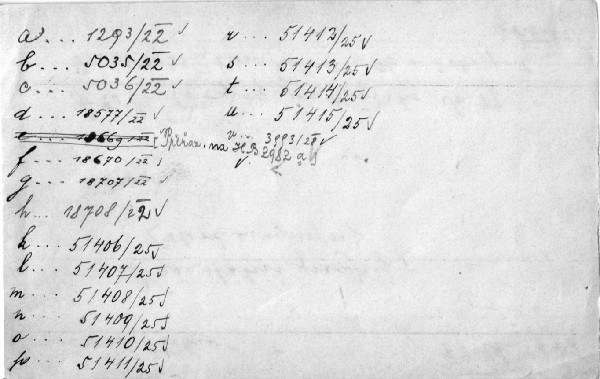 a ... 1293/22 √
b ... 5035/22 √
c ... 5036/22 √
d ... 18577/22 √
e ... 18669/22
f ... 18670/22 √
g ... 18707/22 √
h ... 18708/22 √
k ... 51406/25 √
l ... 51407/25 √
m ... 51408/25 √
n ... 51409/25 √
o ... 51410/25 √
p ... 51411/25 √
r ... 51412/25 √
s ... 51413/25 √
t ... 51414/25 √
u ... 51415/25 √
v ... 3993/28 √
na H.B 2982 a